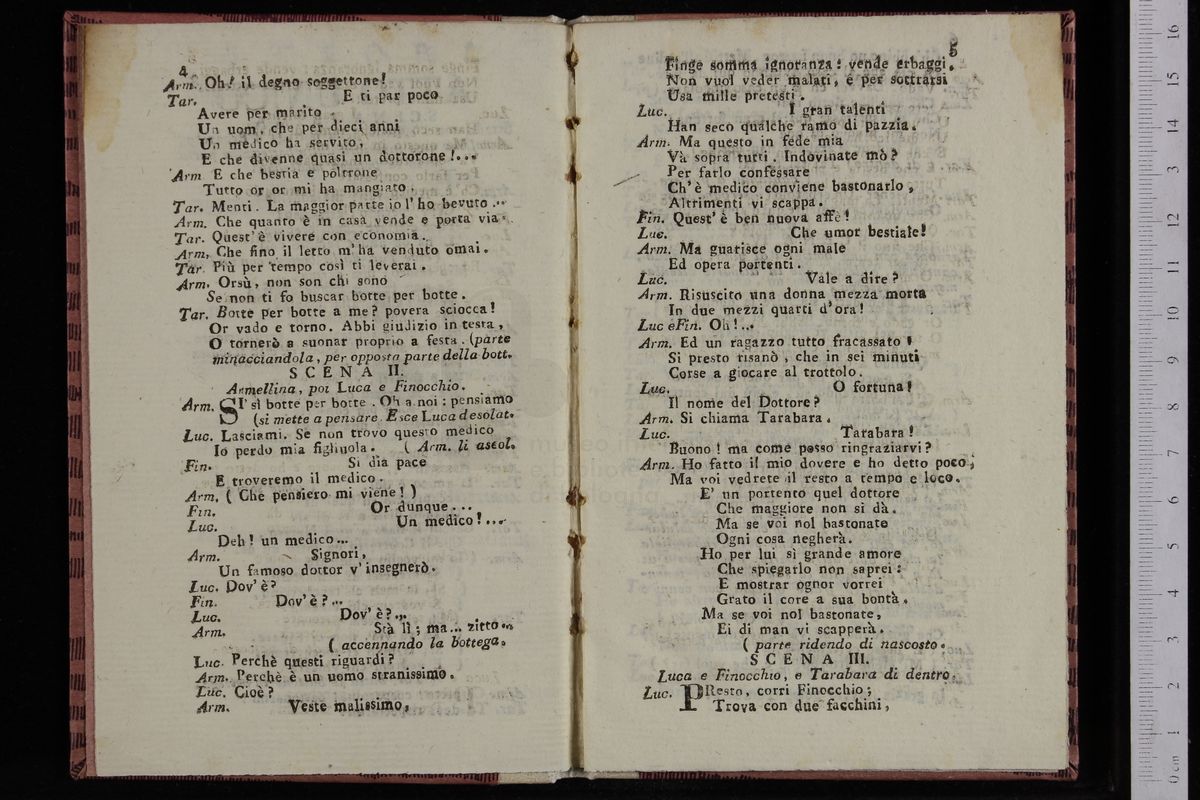 4
Arm. Oh! il degno soggettone!
Tar. E ti par poco
Avere per marito
Un uom, che per dieci anni
Un medico ha servito,
E che divenne quasi un dottorone!...
Arm E che bestia e poltrone
Tutto or or mi ha mangiato.
Tar. Menti. La maggior parte io l'ho bevuto...
Arm. Che quanto è in casa vende e porta via.
Tar. Quest'è vivere con economia.
Arm. Che fino il letto m'ha venduto omai.
Tar. Più per tempo così ti leverai.
Arm. Orsù, non son chi sono
Se non ti fo buscar botte per botte.
Tar. Botte per botte a me? povera sciocca!
Or vado e torno. Abbi giudizio in testa,
O tornerò a suonar proprio a festa. (parte
minacciandola, per opposta parte della bott.
SCENA II.
Armellina, poi Luca e Finocchio.
Arm. SI' sì botte per botte. Oh a noi: pensiamo
(si mette a pensare. Esce Luca desolat.
Luc. Lasciami. Se non trovo questo medico
Io perdo mia figliuola. ( Arm. li ascol.
Fin. Si dia pace
E troveremo il medico.
Arm. ( Che pensiero mi viene! )
Fin. Or dunque...
Luc. Un medico!...
Deh! un medico...
Arm. Signori,
Un famoso dottor v'insegnerò.
Luc. Dov'è?
Fin. Dov'è?...
Luc. Dov'è?...
Arm. Stà lì; ma... zitto...
( accennando la bottega.
Luc. Perchè questi riguardi?
Arm. Perchè è un uomo stranissimo.
Luc. Cioè?
Arm. Veste malissimo,
5
Finge somma ignoranza: vende erbaggi.
Non vuol veder malati, e per sottrarsi
Usa mille pretesti.
Luc. I gran talenti
Han seco qualche ramo di pazzia.
Arm. Ma questo in fede mia
Và sopra tutti. Indovinate mò?
Per farlo confessare
Ch'è medico conviene bastonarlo,
Altrimenti vi scappa.
Fin. Quest'è ben nuova affè!
Luc. Che umor bestiale!
Arm. Ma guarisce ogni male
Ed opera portenti.
Luc. Vale a dire?
Arm. Risuscitò una donna mezza morta
In due mezzi quarti d'ora!
Luc e Fin. Oh!...
Arm. Ed un ragazzo tutto fracassato
Sì presto risanò, che in sei minuti
Corse a giocare al trottolo.
Luc. O fortuna!
Il nome del Dottore?
Arm. Si chiama Tarabara.
Luc. Tarabara!
Buono! ma come posso ringraziarvi?
Arm. Ho fatto il mio dovere e ho detto poco,
Ma voi vedrete il resto a tempo e loco.
E' un portento quel dottore
Che maggiore non si dà.
Ma se voi nol bastonate
Ogni cosa negherà.
Ho per lui sì grande amore
Che spiegarlo non saprei:
E mostrar ognor vorrei
Grato il core a sua bontà.
Ma se voi nol bastonate,
Ei di man vi scapperà.
( parte ridendo di nascosto.
SCENA III.
Luca e Finocchio, e Tarabara di dentro.
Luc. PResto, corri Finocchio;
Trova con due facchini,
0 cm 1 2 3 4 5 6 7 8 9 10 11 12 13 14 15 16